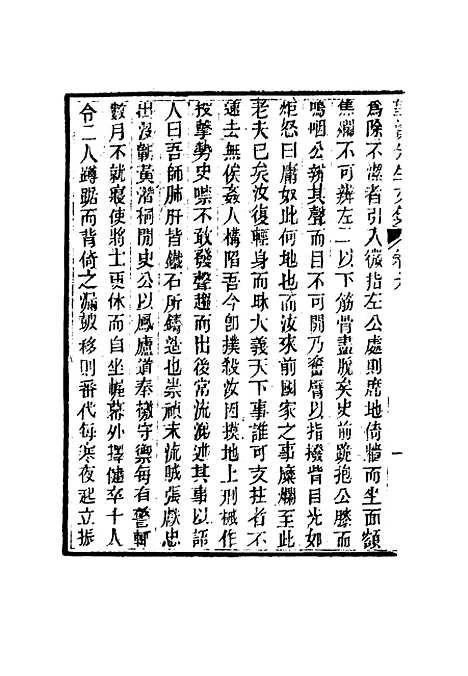 望溪先生文集 卷九 一
爲除不潔者引入微指左公處則席地倚牆而坐面額
焦爛不可辨左厀以下筋骨盡脫矣史前跪抱公膝而
嗚咽公辨其聲而目不可開乃奮臂以指撥眥目光如
炬怒曰庸奴此何地也而汝來前國家之事糜爛至此
老夫已矣汝復輕身而昧大義天下事誰可支拄者不
速去無俟姦人構陷吾今卽撲殺汝因摸地上刑械作
投擊勢史噤不敢發聲趨而出後常流涕述其事以語
人曰吾師肺肝皆鐵石所鑄造也崇禎末流賊張獻忠
出沒蘄黃潛桐閒史公以鳳廬道奉檄守禦每有警輒
數月不就寢使將士更休而自坐幄幕外擇健卒十人
令二人蹲踞而背倚之漏鼓移則番代每寒夜起立振